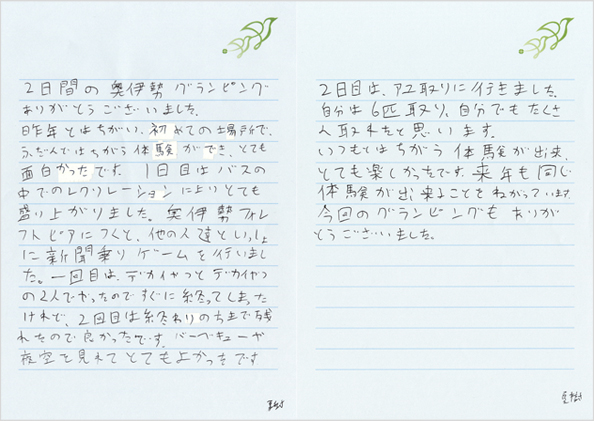 2日間の奥伊勢グランピング
ありがとうございました。
昨年とはちがい、初めての場所で、
ふだんではちがう体験ができ、とても
面白かったです。1日目はバスの
中でのレクリレーションによりとても
盛り上がりました。奥伊勢フォレ
ストピアにつくと、他の人達といっしょ
に新聞乗りゲームを行いまし
た。一回目は、デカイやつとデカイやつ
の2人でやったのですぐに終ってしまった
けれど、2回目は終わりのち主で残
れたので良かったです。バーベキューや
夜空を見れてとてもよかったです
2日目は、アユ取りに行きました。
自分は6匹取り、自分でもたくさ
ん取れたと思います。
いつもとはちがう体験が出来、
とても楽しかったです。来年も同じ
体験が出来ることをねがっています
今回のグランピングもありが
とうございました。